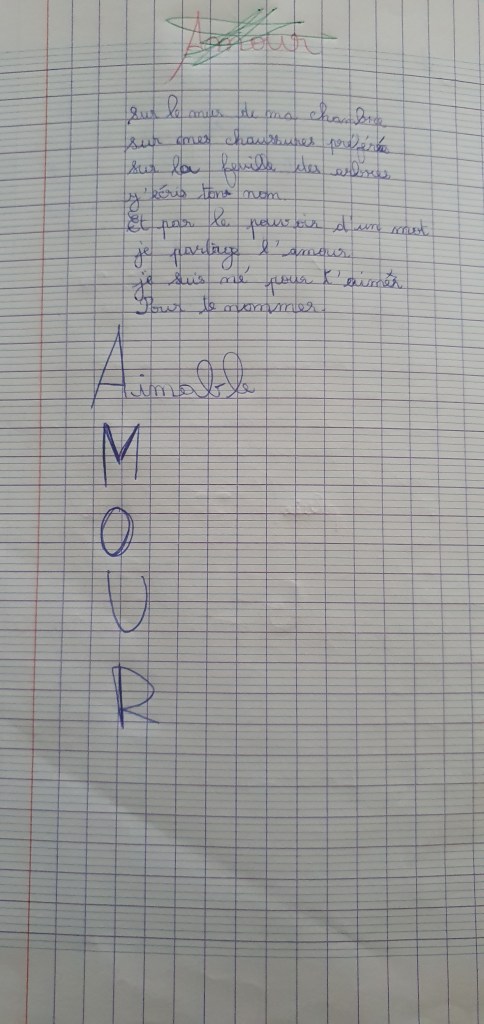 Amour
sur le mur de ma chambre
sur mes chaussures préférée
sur la feuille des arbres
j'écris tons nom.
Et par le pouvoir d'un mot
je partage l'amour
je suis né pour t'aimer
Pour te nommer.
Aimable
M
O
U
R